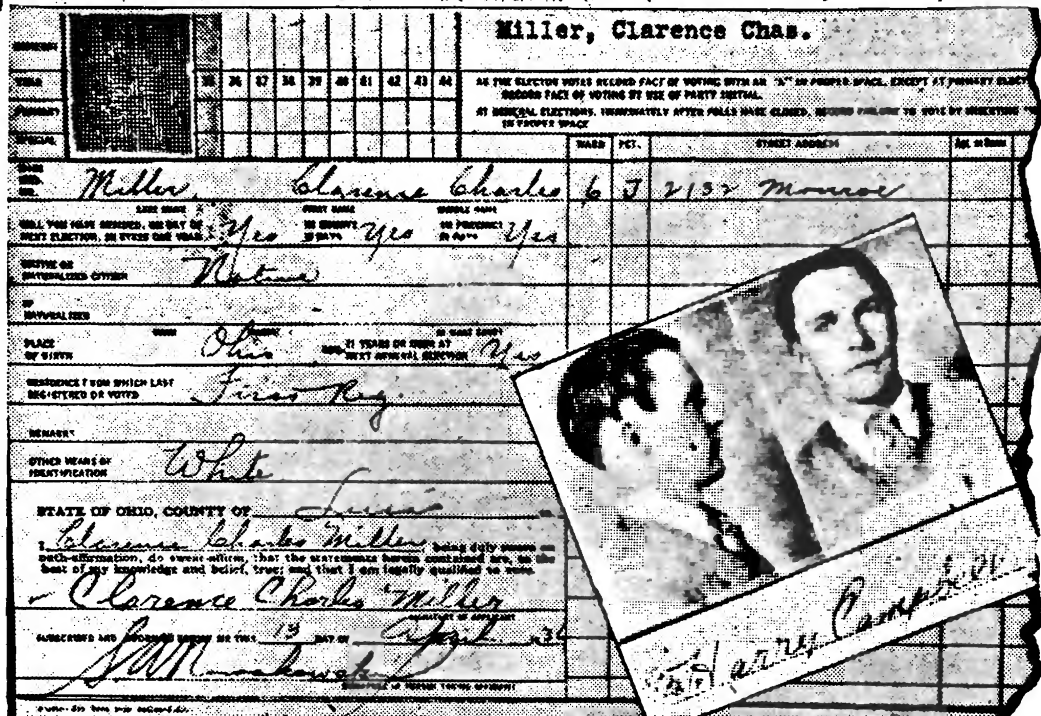 Miller, Clarence Chas.
36 37 38 39 40 41 42 43 44
AS THE ELECTOR VOTES RECORD FACT OF VOTING WITH AN "X" IN PROPER SPACE, EXCEPT AT PRIMARY
RECORD FACT OF VOTING BY USE OF PARTY INITIAL.
AT GENERAL ELECTIONS, IMMEDIATELY AFTER POLLS HAVE CLOSED, RECORD FAILURE TO VOTE BY INSERTING
IN PROPER SPACE
SPECIAL
WARD PCT. STREET ADDRESS
Miller, Clarence Charles 6 J 2132 Monroe
LAST NAME FIRST NAME MIDDLE NAME
WILL YOU HAVE RESIDED, ON DAY OF
NEXT ELECTION, IN STATE ONE YEAR Yes Yes Yes
NATIVE OR
NATURALIZED CITIZEN Native
IF
NATURALIZED
PLACE
OF BIRTH Ohio 21 YEARS OR MORE AT
NEXT GENERAL ELECTION Yes
RESIDENCE FROM WHICH LAST
REGISTERED OR VOTED First Reg.
REMARKS
OTHER MEANS OF
IDENTIFICATION White
STATE OF OHIO, COUNTY OF Lucas
I Clarence Charles Miller being duly sworn on
oath-affirmation, do swear-affirm, that the statements herein contained are, to the
best of my knowledge and belief, true; and that I am legally qualified to vote
Clarence Charles Miller
SIGNATURE OF APPLICANT
SUBSCRIBED AND SWORN BEFORE ME THIS 13 DAY OF
Harry Campbell